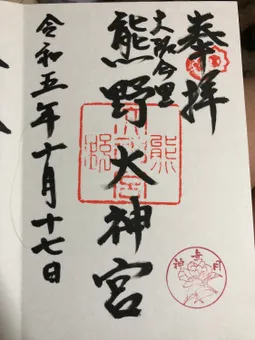 奉拝
大阪今里
熊野大神宮
令和五年十月十七日
神無月